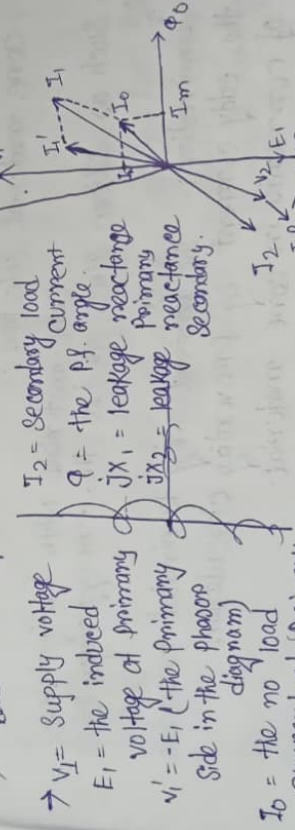 → V1 = Supply voltage
E1 = the induced
voltage at primary
V1' = -E1 (the primary
side in the phasor
diagram)
I0 = the no load
I2 = Secondary load
current
φ = the p.f. angle.
jX1 = leakage reactance
primary
jX2 = leakage reactance
secondary.
I1
I1'
I0
Im
φ0
E1
V2
I2